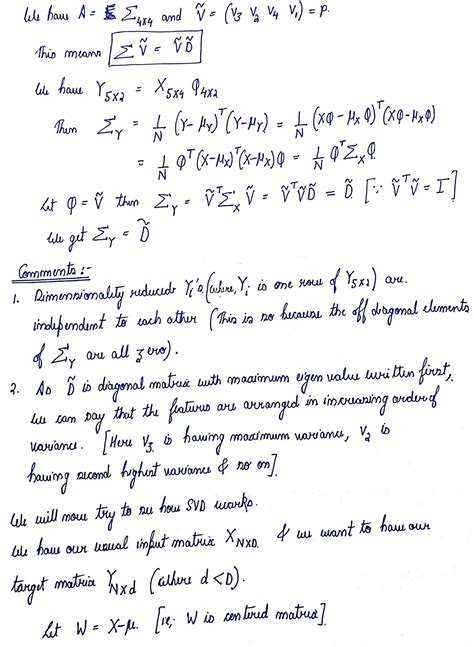 We have A = Σ₄ₓ₄ and Ṽ = (V₃ V₂ V₄ V₁) = p.
This means ΣṼ = ṼD̃
We have Y₅ₓ₂ = X₅ₓ₄ φ₄ₓ₂
Then Σ_Y = 1/N (Y-μ_Y)ᵀ(Y-μ_Y) = 1/N (Xφ-μ_Xφ)ᵀ(Xφ-μ_Xφ)
= 1/N φᵀ(X-μ_X)ᵀ(X-μ_X)φ = 1/N φᵀΣ_Xφ.
Let φ = Ṽ then Σ_Y = ṼᵀΣ_XṼ = ṼᵀṼD̃ = D̃. [∵ ṼᵀṼ = I]
We get Σ_Y = D̃
Comments :-
1. Dimensionality reduced Yᵢ's (where, Yᵢ is one row of Y₅ₓ₂) are
independent to each other (This is so because the off diagonal elements
of Σ_Y are all zero).
2. As D̃ is diagonal matrix with maximum eigen value written first,
we can say that the features are arranged in increasing order of
variance. [Here V₃ is having maximum variance, V₂ is
having second highest variance & so on].
We will now try to see how SVD works.
We have our usual input matrix X_NxD. & we want to have our
target matrix Y_Nxd (where d < D).
Let W = X-μ. [ie; W is centered matrix]